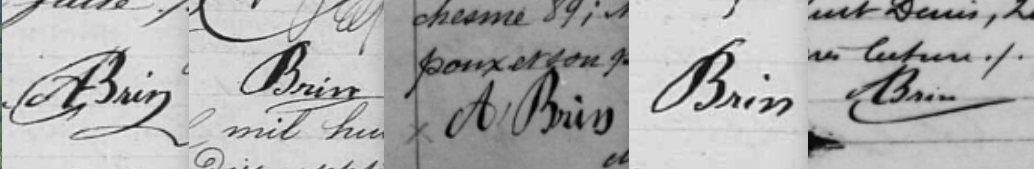 ABrin
Brin
mil hu
chesme 89; 
poux et son p
A Brin
Brin
uit Denis, 2
res luture ./.
ABrin